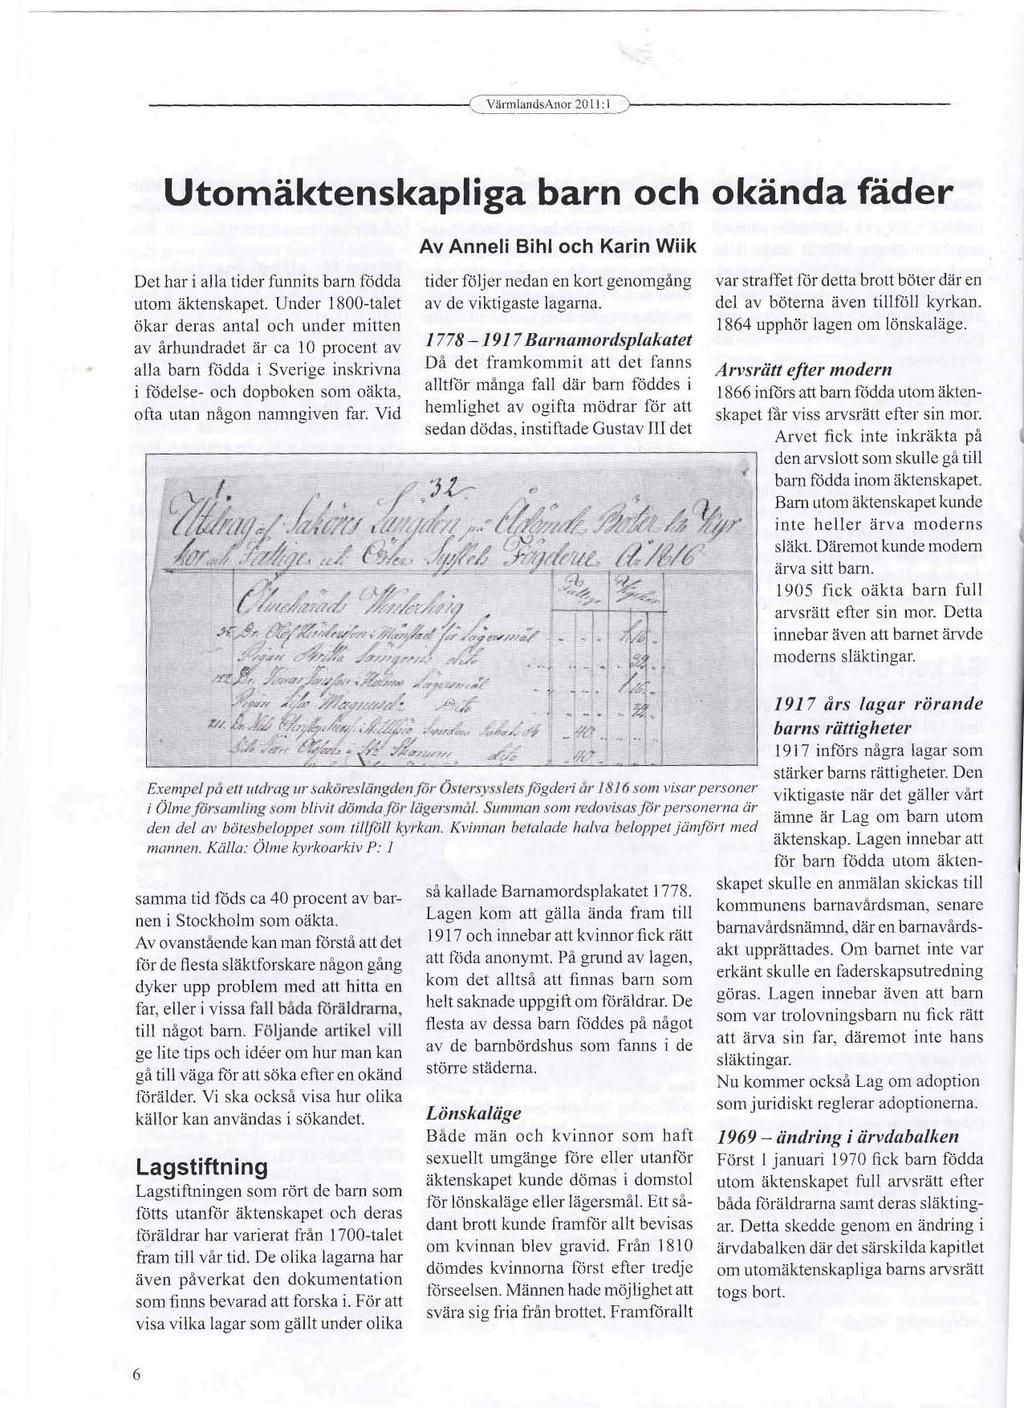 VärmlandsAnor 2011:1
Utomäktenskapliga barn och okända fäder
Av Anneli Bihl och Karin Wiik
Det har i alla tider funnits barn födda
utom äktenskapet. Under 1800-talet
ökar deras antal och under mitten
av århundradet är ca 10 procent av
alla barn födda i Sverige inskrivna
i födelse- och dopboken som oäkta,
ofta utan någon namngiven far. Vid
samma tid föds ca 40 procent av bar-
nen i Stockholm som oäkta.
Av ovanstående kan man förstå att det
för de flesta släktforskare någon gång
dyker upp problem med att hitta en
far, eller i vissa fall båda föräldrarna,
till något barn. Följande artikel vill
ge lite tips och idéer om hur man kan
gå till väga för att söka efter en okänd
förälder. Vi ska också visa hur olika
källor kan användas i sökandet.
Lagstiftning
Lagstiftningen som rört de barn som
fötts utanför äktenskapet och deras
föräldrar har varierat från 1700-talet
fram till vår tid. De olika lagarna har
även påverkat den dokumentation
som finns bevarad att forska i. För att
visa vilka lagar som gällt under olika
tider följer nedan en kort genomgång
av de viktigaste lagarna.
1778 – 1917 Barnamordsplakatet
Då det framkommit att det fanns
alltför många fall där barn föddes i
hemlighet av ogifta mödrar för att
sedan dödas, instiftade Gustav III det
32
Utdrag af Saköres Längden
Fattige och Östra Sysslets Fögderie År 1816
Exempel på ett utdrag ur saköreslängden för Östersysslets fögderi år 1816 som visar personer
i Ölme församling som blivit dömda för lägersmål. Summan som redovisas för personerna är
den del av bötesbeloppet som tillföll kyrkan. Kvinnan betalade halva beloppet jämfört med
mannen. Källa: Ölme kyrkoarkiv P: 1
så kallade Barnamordsplakatet 1778.
Lagen kom att gälla ända fram till
1917 och innebar att kvinnor fick rätt
att föda anonymt. På grund av lagen,
kom det alltså att finnas barn som
helt saknade uppgift om föräldrar. De
flesta av dessa barn föddes på något
av de barnbördshus som fanns i de
större städerna.
Lönskaläge
Både män och kvinnor som haft
sexuellt umgänge före eller utanför
äktenskapet kunde dömas i domstol
för lönskaläge eller lägersmål. Ett så-
dant brott kunde framför allt bevisas
om kvinnan blev gravid. Från 1810
dömdes kvinnorna först efter tredje
förseelsen. Männen hade möjlighet att
svära sig fria från brottet. Framförallt
var straffet för detta brott böter där en
del av böterna även tillföll kyrkan.
1864 upphör lagen om lönskaläge.
Arvsrätt efter modern
1866 införs att barn födda utom äkten-
skapet får viss arvsrätt efter sin mor.
Arvet fick inte inkräkta på
den arvslott som skulle gå till
barn födda inom äktenskapet.
Barn utom äktenskapet kunde
inte heller ärva moderns
släkt. Däremot kunde modern
ärva sitt barn.
1905 fick oäkta barn full
arvsrätt efter sin mor. Detta
innebar även att barnet ärvde
moderns släktingar.
1917 års lagar rörande
barns rättigheter
1917 införs några lagar som
stärker barns rättigheter. Den
viktigaste när det gäller vårt
ämne är Lag om barn utom
äktenskap. Lagen innebar att
för barn födda utom äkten-
skapet skulle en anmälan skickas till
kommunens barnavårdsman, senare
barnavårdsnämnd, där en barnavårds-
akt upprättades. Om barnet inte var
erkänt skulle en faderskapsutredning
göras. Lagen innebar även att barn
som var trolovningsbarn nu fick rätt
att ärva sin far, däremot inte hans
släktingar.
Nu kommer också Lag om adoption
som juridiskt reglerar adoptionerna.
1969 – ändring i ärvdabalken
Först 1 januari 1970 fick barn födda
utom äktenskapet full arvsrätt efter
båda föräldrarna samt deras släkting-
ar. Detta skedde genom en ändring i
ärvdabalken där det särskilda kapitlet
om utomäktenskapliga barns arvsrätt
togs bort.
6